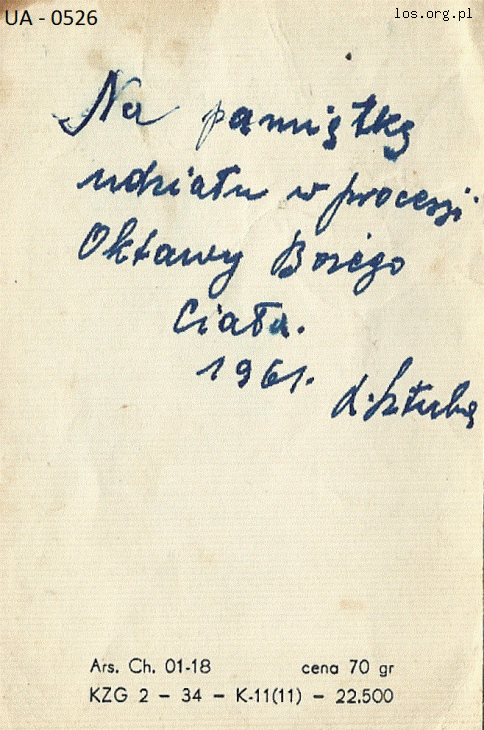 UA - 0526
los.org.pl
Na pamiątkę
udziału w procesji
Oktawy Bożego
Ciała.
1961.
Ars. Ch. 01-18 cena 70 gr
KZG 2 - 34 - K-11(11) - 22.500